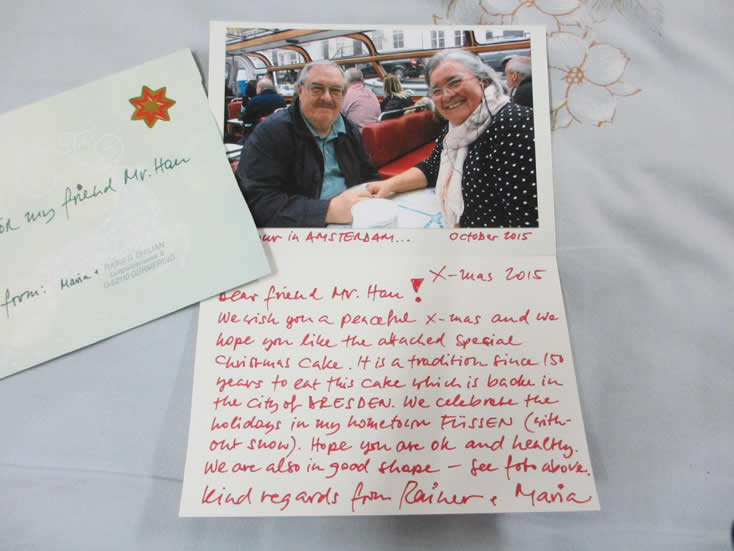 my friend Mr. Han
from: Maria +
in AMSTERDAM... October 2015
X-mas 2015
Dear friend Mr. Han!
We wish you a peaceful X-mas and we
hope you like the attached special
Christmas cake. It is a tradition since 150
years to eat this cake which is backe in
the city of DRESDEN. We celebrate the
holidays in my hometown FÜSSEN (with-
out snow). Hope you are ok and healthy.
We are also in good shape – see foto above.
Kind regards from Rainer + Maria